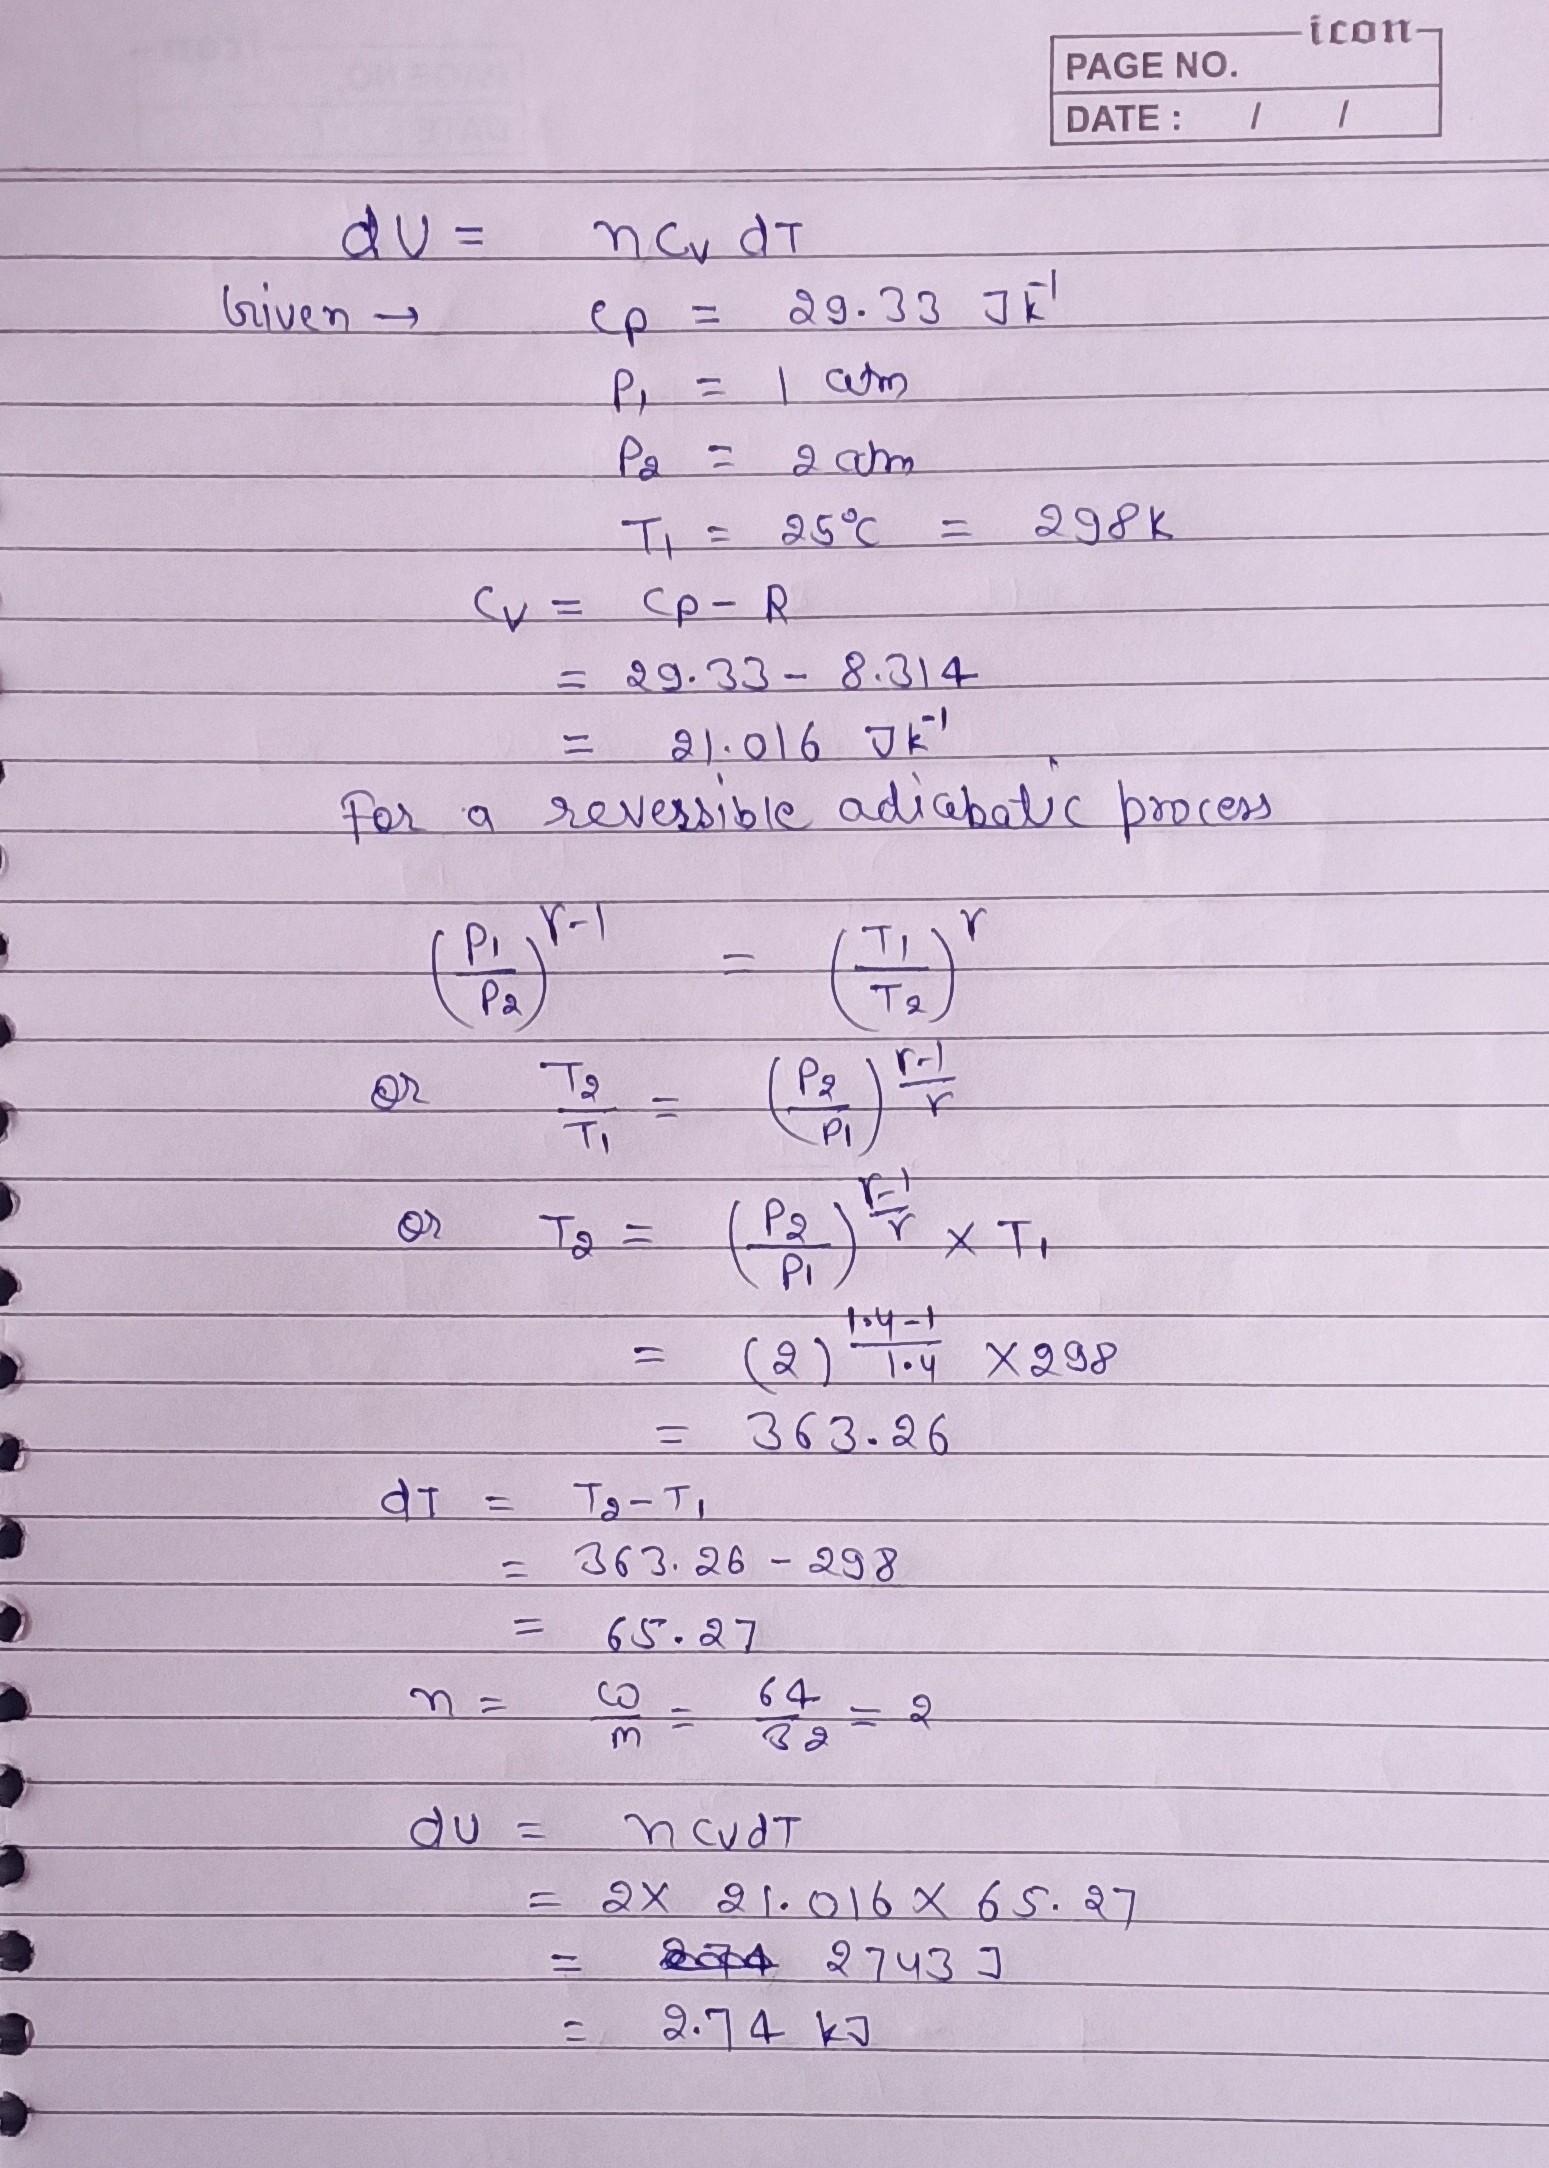 icon
PAGE NO.
DATE : / /
dU = nCv dT
Given → Cp = 29.33 JK⁻¹
P₁ = 1 atm
P₂ = 2 atm
T₁ = 25°C = 298K
Cv = Cp - R
= 29.33 - 8.314
= 21.016 Jk⁻¹
For a reversible adiabatic process
(P₁/P₂)^(r-1) = (T₁/T₂)^r
or T₂/T₁ = (P₂/P₁)^((r-1)/r)
or T₂ = (P₂/P₁)^((r-1)/r) × T₁
= (2)^((1.4-1)/1.4) × 298
= 363.26
dT = T₂ - T₁
= 363.26 - 298
= 65.27
n = ω/m = 64/32 = 2
dU = nCvdT
= 2 × 21.016 × 65.27
= 2743 J
= 2.74 kJ